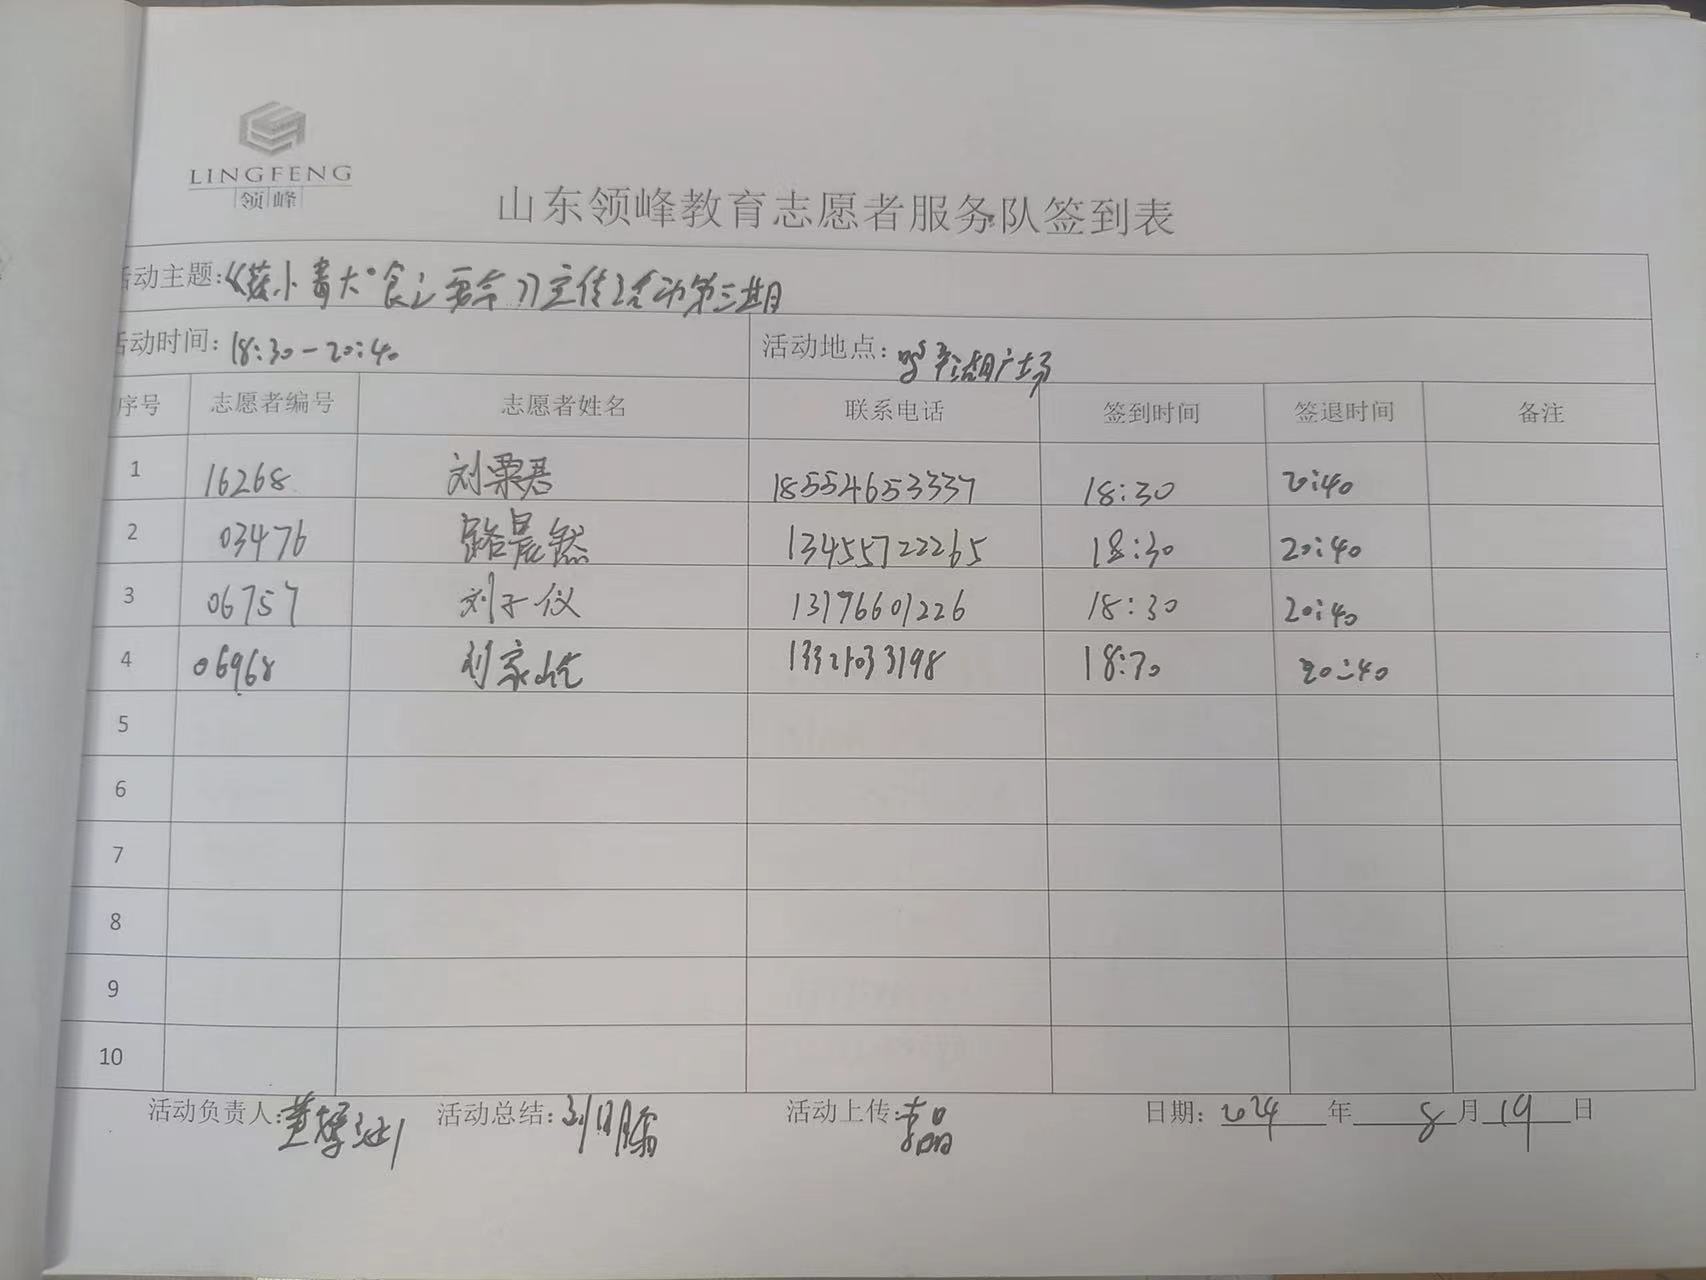 LINGFENG
领峰
山东领峰教育志愿者服务队签到表
活动主题: 宣传活动第三期
活动时间: 18:30-20:40 活动地点: 广场
序号 志愿者编号 志愿者姓名 联系电话 签到时间 签退时间 备注
1 16268 刘栗君 18554653337 18:30 20:40
2 03476 骆晨然 13455722265 18:30 20:40
3 06757 刘子仪 13176601226 18:30 20:40
4 06968 刘家 18:30 20:40
5
6
7
8
9
10
活动负责人: 活动总结: 刘 活动上传: 李晶 日期: 2024 年 8 月 19 日